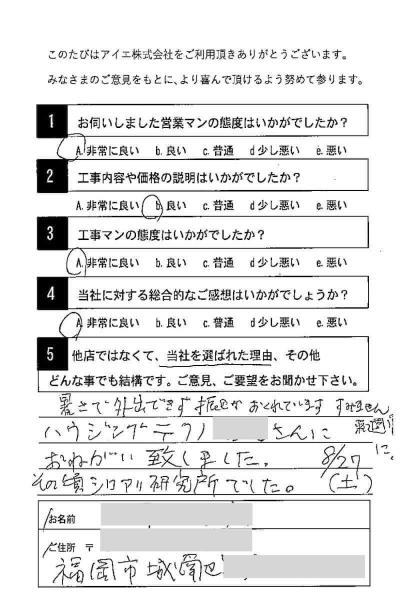 このたびはアイエ株式会社をご利用頂きありがとうございます。
みなさまのご意見をもとに、より喜んで頂けるよう努めて参ります。
1 お伺いしました営業マンの態度はいかがでしたか？
A. 非常に良い b. 良い c. 普通 d 少し悪い e. 悪い
2 工事内容や価格の説明はいかがでしたか？
A. 非常に良い b. 良い c. 普通 d 少し悪い e. 悪い
3 工事マンの態度はいかがでしたか？
A. 非常に良い b. 良い c. 普通 d 少し悪い e. 悪い
4 当社に対する総合的なご感想はいかがでしょうか？
A. 非常に良い b. 良い c. 普通 d 少し悪い e. 悪い
5 他店ではなくて、当社を選ばれた理由、その他
どんな事でも結構です。ご意見、ご要望をお聞かせ下さい。
暑さで外出できず振込がおくれています すみません
ハウジングテクノ さんに
おねがい致しました。 8/27 に。
その頃シロアリ研究所でした。 (土)
お名前
ご住所 〒
福岡市城南区